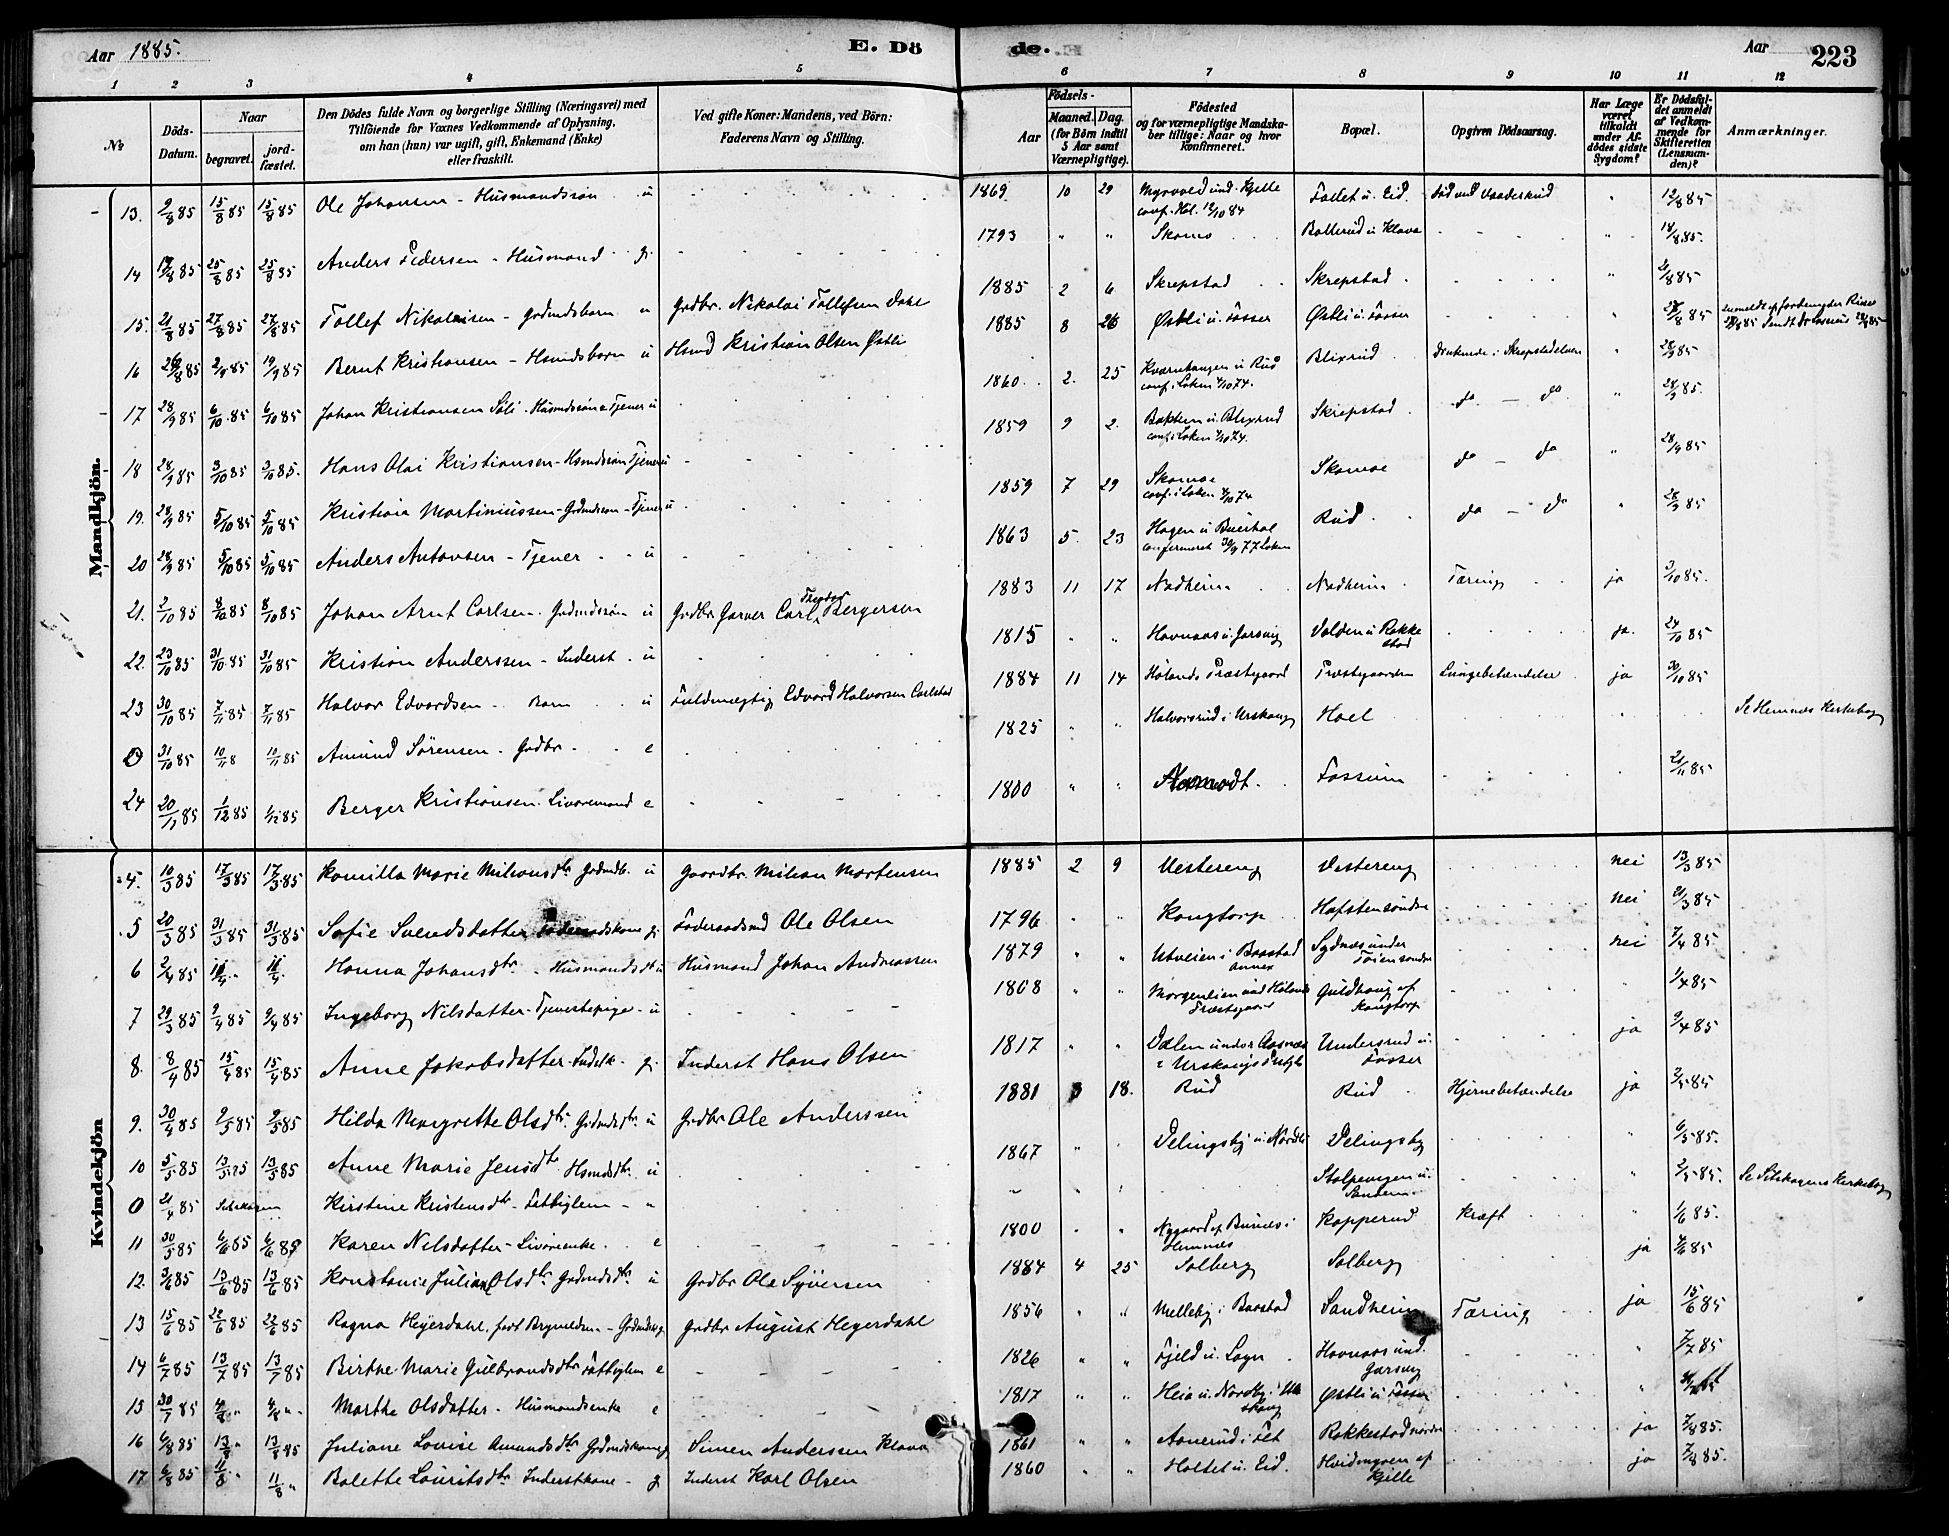 Aar 1885. E. Dö
de. Aar 223
1 2 3 4 5 6 7 8 9 10 11 12
№
Döds-Datum.
Naar
begravet.
jord-fæstet.
Den Dödes fulde Navn og borgerlige Stilling (Næringsvei) med
Tilföiende for Voxnes Vedkommende af Oplysning,
om han (hun) var ugift, gift, Enkemand (Enke)
eller fraskilt.
Ved gifte Koner: Mandens, ved Börn:
Faderens Navn og Stilling.
Födsels-
Aar
Maaned. Dag.
(for Börn indtil
5 Aar samt
Værnepligtige).
Födested
og for værnepligtige Mandska-
ber tillige: Naar og hvor
Konfirmeret.
Bopæl.
Opgiven Dödsaarsag.
Har Læge
været
tilkaldt
under Af-
dödes sidste
Sygdom?
Er Dödsfal-
det anmeldt
af Vedkom-
mende for
Skifteretten
(Lensman-
den)?
Anmærkninger.
Mandkjön.
13. 9/8 85 15/8 85 15/8 85 Ole Johansen - Husmandssøn u 1869 10 29 Myrvold und. Kjelle conf. Høl. 12/10 84 Tollet u. Eid. 12/8 85
14 25/8 85 25/8 85 Anders Pedersen - Husmand g. 1793 " " Skomo Bollerud u Klava 18/8 85.
15. 21/8 85 27/8 85 27/8 85 Tollef Nikolaisen - Grdmdsbarn u Grdbr. Nikolai Tollefsen Dahl 1885 2 6 Skrepstad Skrepstad 21/8 85
16 26/8 85 2/9 85 19/9 85 Bernt Kristiansen - Hsmdsbarn u Hsmd Kristian Olsen Østli 1885 8 26 Østli u. Fosser Østli u. Fosser 27/8 85
17 28/9 85 6/10 85 6/10 85 Johan Kristiansen Søli - Husmdssøn Tjener u 1860 2. 25 Kværnhaugen u Rud conf. i Løken 4/10 74. Blixrud Drukende i Skrepstadelven " 28/9 85
18 28/9 85 3/10 85 3/10 85. Hans Olai Kristiansen - Hsmdssøn Tjener u 1859 9 2. Bakken u. Blixrud conf. i Løken 4/10 74. Skrepstad do - do " 28/9 85.
19. 28/9 85 5/10 85 5/10 85 Kristian Martiniussen - Grdmdssøn - Tjener u 1859 7 29 Skomoe conf. i Løken 4/10 74 Skomoe do - do " 28/9 85
20 28/9 85 5/10 85 5/10 85 Anders Antonsen - Tjener u 1863 5. 23 Hagen u Bunes confirmeret 30/9 77 Løken Rud do - do " 28/9 85
21. 2/10 85 8/10 85 8/10 85 Johan Arnt Carlsen. Grdmdssøn u Grdbr. Garver Carl Theodor Bergersen 1883 11 17 Nadheim Nadheim Tæring ja 3/10 85.
22. 23/10 85 31/10 85 31/10 85 Kristian Anderssen - Inderst u 1815 " " Hovnaas u. Garsvig Volden u Rakkestad ja. 24/10 85
23 30/10 85 7/11 85 7/11 85 Halvor Edvardsen Barn u Fuldmægtig Edvard Halvorsen Carlstad 1884 11 14 Hølands Præstegaard Præstegaarden Lungebetændelse ja 30/10 85
0 31/10 85 10/11 8 10/11 85 Amund Sørensen - Grdbr e 1825 " " Halvorsrud i Urskoug Hoel Se Hemnæs Kirkebog
24 20/11 85 1/12 85 1/12 85 Berger Kristiansen. Livøremand e 1800 " " Fossum 21/11 85
Kvindekjön
4. 10/3 85 17/3 85 17/3 85 Kamilla Marie Milians dtr Grdmdb. u Gaardbr. Milian Mortensen 1885 2 9 Vestereng Vestereng nei 13/3 85
5 20/3 85 31/3 85 31/3 85 Sofie Svendsdatter Føderaadskone g. Føderaadsmd Ole Olsen 1796 " " Kongtorp Hafstensøndre nei 21/3 85
6 2/4 85 11/4 " 11/4 Hanna Johansdtr - Husmandsdtr u Husmand Johan Andreassen 1879 " " Utveien i Baastad Annex Sydnæs under Føien søndre nei 7/4 85
7 29/3 85 9/4 85 9/4 85 Ingeborg Nilsdatter - Tjenestepige - u 1808 " " Morgenlien und Hølands Præstegaard Guldhaug af Kongtorp " 1/4 85
8. 8/4 85 15/4 85 15/4 85 Anne Jakobsdatter - Inderk - g. Inderst Hans Olsen 1817 " " Dalen under Aasnes i Urskougs Prstgld Undersrud u. Fosser ja 9/4 85
9. 30/4 85 9/5 85 9/5 85 Hilda Margrethe Olsdtr. Grdmdsdtr. u Grdbr Ole Anderssen 1881 3 18. Rud Rud Hjernebetændelse ja 2/5 85
10 5/5 85 13/5 85 13/5 85 Anne Marie Jensdtr Hsmdsdtr. u 1867 " " Delingsby u. Nordby Delingsby " 6/5 85.
0 21/4 85 Setskogen Kirstine Kristensdtr. Fattiglem - " Stolpevegen u. Sandem " 2/5 85. Se Setskogens Kirkebog
11 30/5 85 6/6 85 6/6 85 Karen Nilsdatter - Livøreenke e 1800 " " Nygaard af Bunes i Hemnæs Kopperud Kræft " 1/6 85.
12. 3/6 85 13/6 85 13/6 85 Konstanse Juliane Olsdtr Grdmdsdtr. u Grdbr Ole Syversen 1884 4 25 Solberg Solberg ja 4/6 85
13 15/6 85 22/6 85 22/6 85 Ragna Heyerdahl, født Brynildsen - Grdmdsk g. Grdbr August Heyerdahl 1856 " " Melleby i Baastad Sandheim Tæring ja 15/6 85
14 6/7 85 13/7 85 13/7 85 Birthe Marie Gulbrandsdtr Fattiglem e 1826 " " Fjeld u. Logn Hovnaas und. Garsvig " 7/7 85
15 30/7 85 4/8 " 4/8 " Marthe Olsdatter - Husmandsenke e 1817 " " Heia u. Nordby i Urskoug Østli u Fosser "
16 6/8 85 13/8 " 13/8 85 Juliane Lovise Amundsdtr Grdmdskone g Simen Anderssen Klava 1861 " " Aanerud i Fet Rakkestad nordre ja 7/8 85.
17 6/8 85 11/8 " 11/8 " Bolette Lauritsdtr Inderstkone - g Inderst Karl Olsen 1860 " " Holtet u. Eid. Hvidmyren af Kjelle ja 7/8 85.